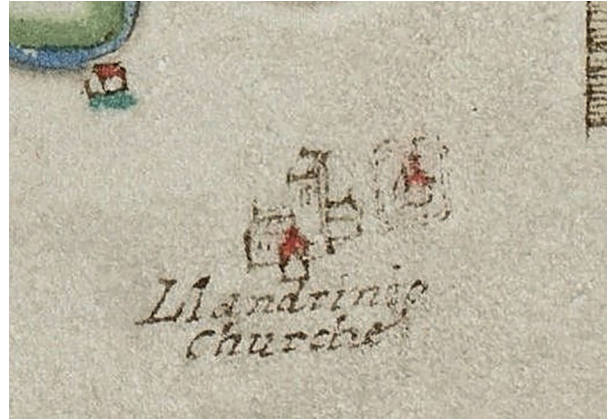 Llandrinio
Churche